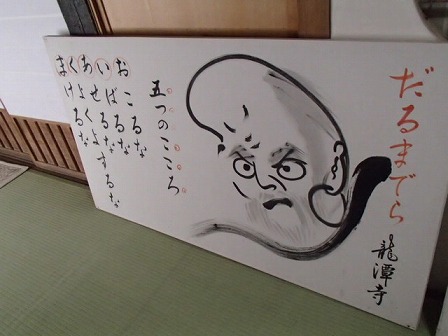 だるまでら
龍潭寺
五つのこころ
おこるな
いばるな
あせるな
くよくよするな
まけるな